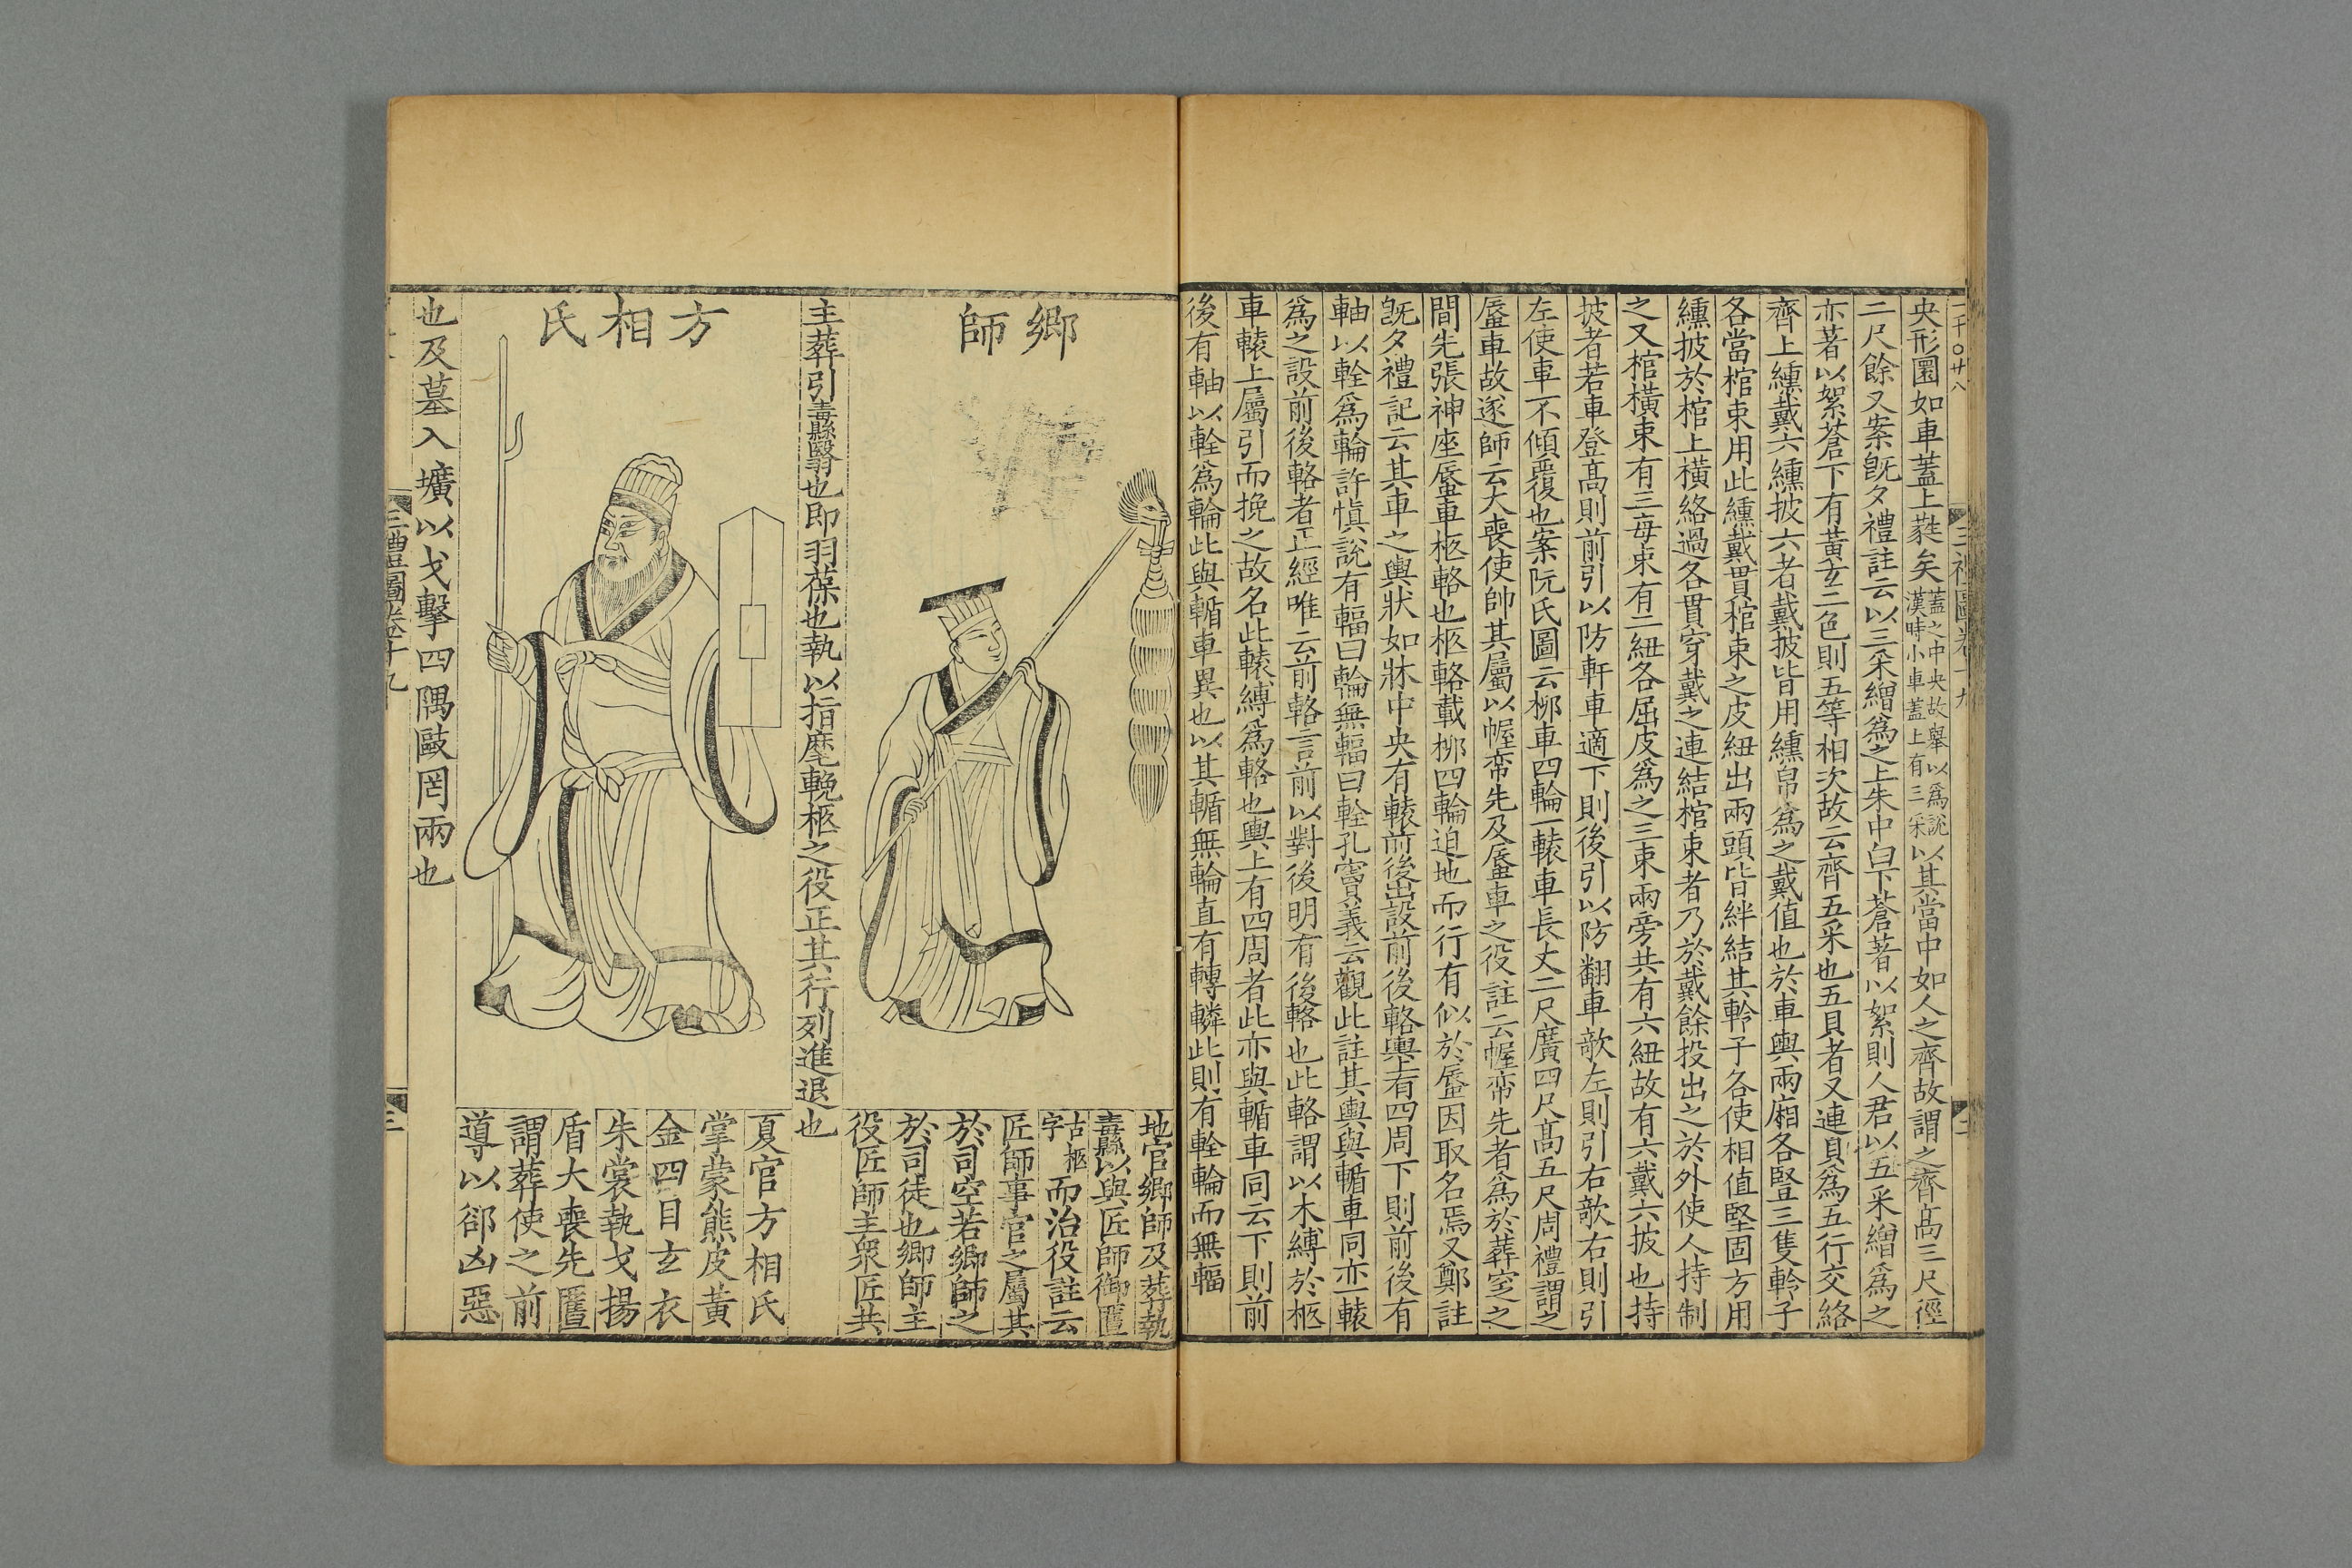 二千〇廿八
三禮圖卷十九
二
央形圜如車蓋上蕤矣蓋之中央故舉以為說漢時小車蓋上有三采以其當中如人之齊故謂之齊高三尺徑
二尺餘又案旣夕禮註云以三采繒為之上朱中白下蒼著以絮則人君以五采繒為之
亦著以絮蒼下有黃玄二色則五等相次故云齊五采也五貝者又連貝為五行交絡
齊上纁戴六纁披六者戴披皆用纁帛為之戴值也於車輿兩廂各豎三隻軨子
各當棺束用此纁戴貫棺束之皮紐出兩頭皆絆結其軨子各使相值堅固方用
纁披於棺上橫絡過各貫穿戴之連結棺束者乃於戴餘投出之於外使人持制
之又棺橫束有三每束有二紐各屈皮為之三束兩旁共有六紐故有六戴六披也持
披者若車登高則前引以防軒車適下則後引以防翻車欹左則引右欹右則引
左使車不傾覆也案阮氏圖云柳車四輪一轅車長丈二尺廣四尺高五尺周禮謂之
蜃車故遂師云大喪使帥其屬以幄帟先及蜃車之役註云幄帟先者為於葬窆之
間先張神座蜃車柩輅也柩輅載柳四輪迫地而行有似於蜃因取名焉又鄭註
旣夕禮記云其車之輿狀如牀中央有轅前後出設前後輅輿上有四周下則前後有
軸以輇為輪許慎說有輻曰輪無輻曰輇孔賈義云觀此註其輿與輴車同亦一轅
為之設前後輅者正經唯云前輅言前以對後明有後輅也此輅謂以木縛於柩
車轅上屬引而挽之故名此轅縛為輅也輿上有四周者此亦與輴車同云下則前
後有軸以輇為輪此與輴車異也以其輴無輪直有轉轔此則有輇輪而無輻
鄉師
地官鄉師及葬執
纛以與匠師御匶
古柩字而治役註云
匠師事官之屬其
於司空若鄉師之
於司徒也鄉師主
役匠師主眾匠共
主葬引纛翳也即羽葆也執以指麾輓柩之役正其行列進退也
方相氏
夏官方相氏
掌蒙熊皮黃
金四目玄衣
朱裳執戈揚
盾大喪先匶
謂葬使之前
導以郤凶惡
也及墓入壙以戈擊四隅敺罔兩也
三禮圖卷十九
三